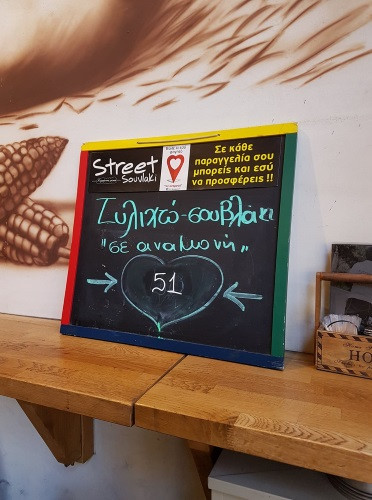 Street
Souvlaki
Σε κάθε
παραγγελία σου
μπορείς και εσύ
να προσφέρεις !!
Τυλιχτό-σουβλάκι
"σε αναμονή„
51
HO